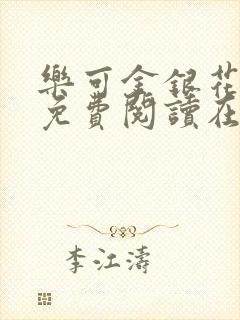 樂可金銀花
免費閱讀在
李江濤